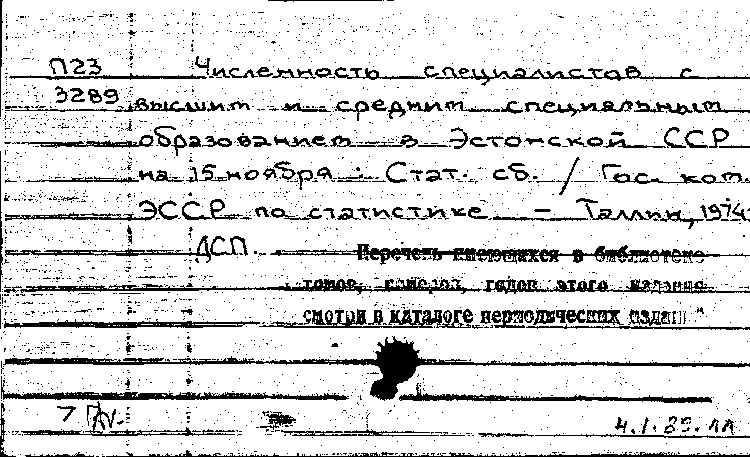 П23 Численность специалистов с
3289 высшим и средним специальным
образованием в Эстонской ССР
на 15 ноября : Стат. сб. / Гос. ком.
ЭССР по статистике — Таллин, 1974-
ДСП. Перечень имеющихся в библиотеке
томов, номеров, годов этого издания
смотри в каталоге периодических издан
4.1.89.